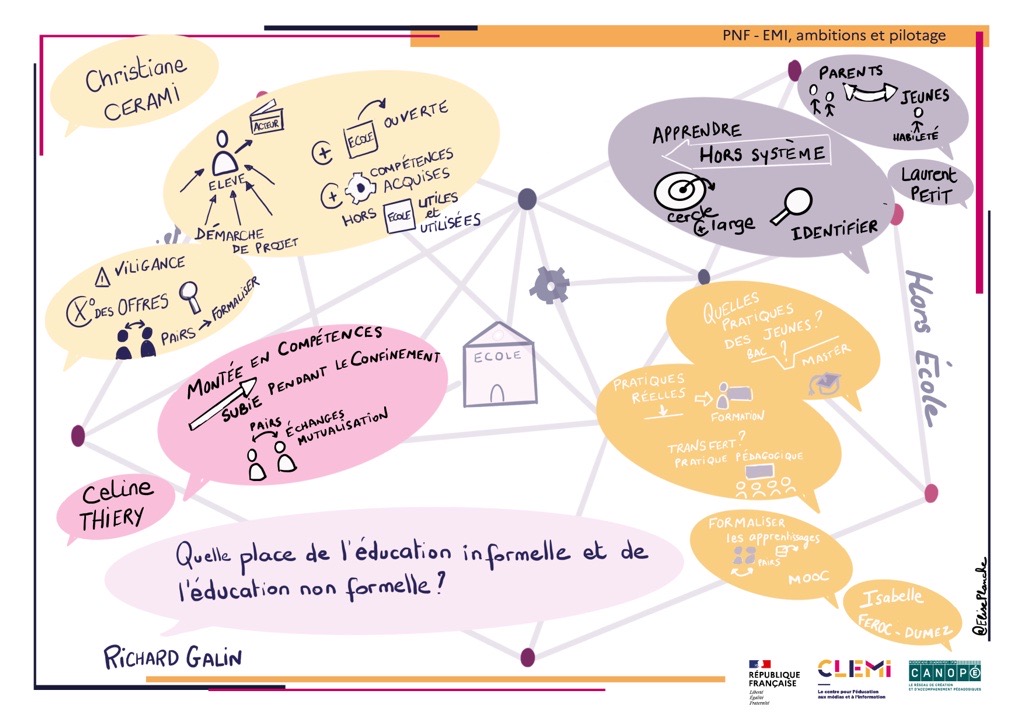 PNF - EMI, ambitions et pilotage
Christiane
CERAMI
ACTEUR
ELEVE
DÉMARCHE
DE PROJET
ÉCOLE
OUVERTE
COMPÉTENCES
ACQUISES
HORS
ÉCOLE
UTILES
et
UTILISÉES
VILIGANCE
X° DES OFFRES
PAIRS
FORMALISER
MONTÉE EN COMPÉTENCES
SUBIE PENDANT LE CONFINEMENT
PAIRS
ÉCHANGES
MUTUALISATION
Celine
THIERY
ECOLE
PARENTS
JEUNES
HABILETÉ
APPRENDRE
HORS SYSTÈME
cercle
+ large
IDENTIFIER
Laurent
PETIT
Hors École
QUELLES
PRATIQUES
DES JEUNES?
BAC
?
MASTER
PRATIQUES
RÉELLES
FORMATION
TRANSFERT?
PRATIQUE PÉDAGOGIQUE
FORMALISER
les apprentissages
PAIRS
MOOC
Isabelle
FEROC-DUMEZ
Quelle place de l'éducation informelle et de
l'éducation non formelle?
RICHARD GALIN
@ElisePlanche
RÉPUBLIQUE
FRANÇAISE
Liberté
Égalité
Fraternité
CLEMI
Le centre pour l'éducation
aux médias et à l'information
CANOPÉ
LE RÉSEAU DE CRÉATION
ET D'ACCOMPAGNEMENT PÉDAGOGIQUES